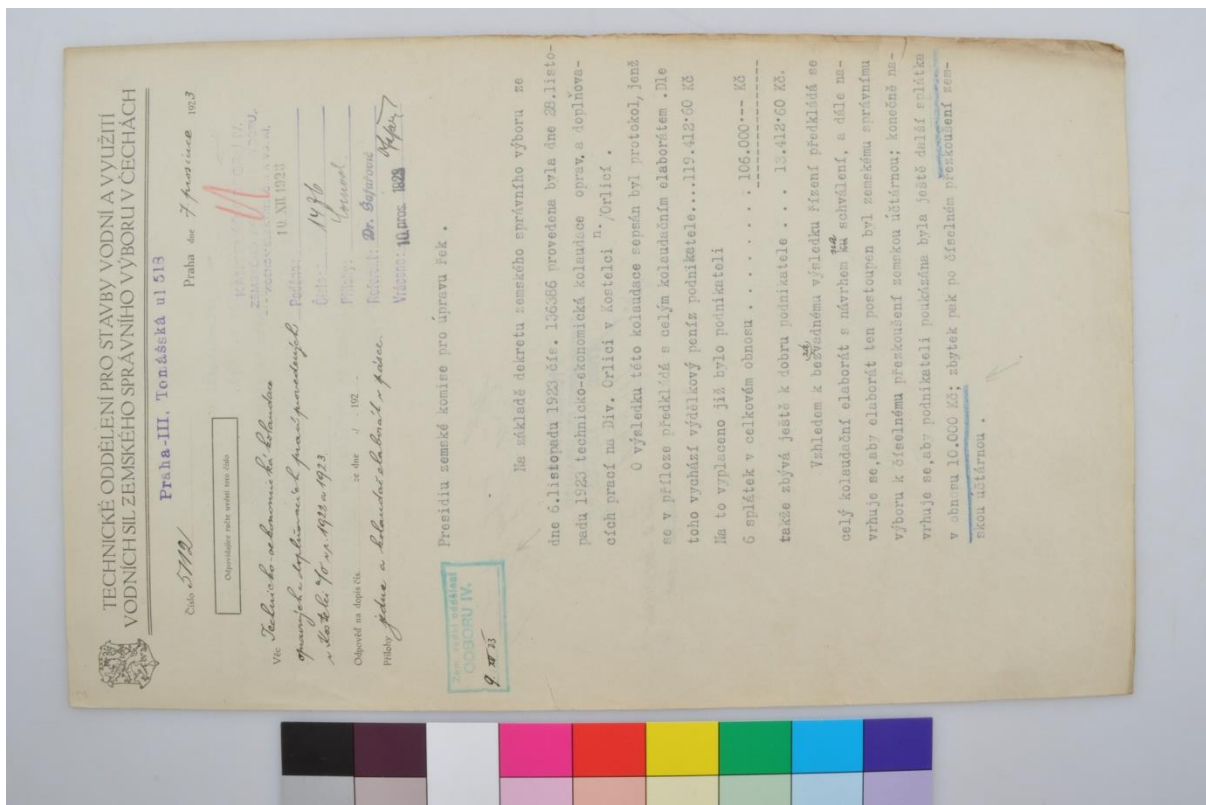 TECHNICKÉ ODDĚLENÍ PRO STAVBY VODNÍ A VYUŽITÍ
VODNÍCH SIL ZEMSKÉHO SPRÁVNÍHO VÝBORU V ČECHÁCH
Praha-III. Tomášská ul 518
Číslo 5712/
Praha dne 7. prosince 1923
Odpovídajíce račte uvésti toto číslo.
10. XII 1923
1476
Dr. Šafařovič
Vráceno: 10. pros. 1923
Věc Technicko-ekonomická kolaudace
opravných a doplňovacích prací provedených
v Kostelci n/O v r. 1922 a 1923
Odpověď na dopis čís. ze dne 192
Přílohy jedna a kolaudač. elaborát v pásce.
Zem. vodní oddělení
ODBORU IV.
9. XII 23
Presidiu zemské komise pro úpravu řek .
Na základě dekretu zemského správního výboru ze
dne 6.listopadu 1923 čís. 136386 provedena byla dne 28.listo-
padu 1923 technicko-ekonomická kolaudace oprav. a doplňova-
cích prací na Div. Orlici v Kostelci n./Orlicí .
O výsledku této kolaudace sepsán byl protokol, jenž
se v příloze předkládá s celým kolaudačním elaborátem .Dle
toho vychází výdělkový peníz podnikatele....119.412·60 Kč
Na to vyplaceno již bylo podnikateli
6 splátek v celkovém obnosu . . . . . . . 106.000·-- Kč
takže zbývá ještě k dobru podnikatele . . . 13.412·60 Kč.
Vzhledem k bezvadnému výsledku řízení předkládá se
celý kolaudační elaborát s návrhem na schválení, a dále na-
vrhuje se,aby elaborát ten postoupen byl zemskému správnímu
výboru k číselnému přezkoušení zemskou účtárnou; konečně na-
vrhuje se,aby podnikateli poukázána byla ještě další splátka
v obnosu 10.000 Kč; zbytek pak po číselném přezkoušení zem-
skou účtárnou .